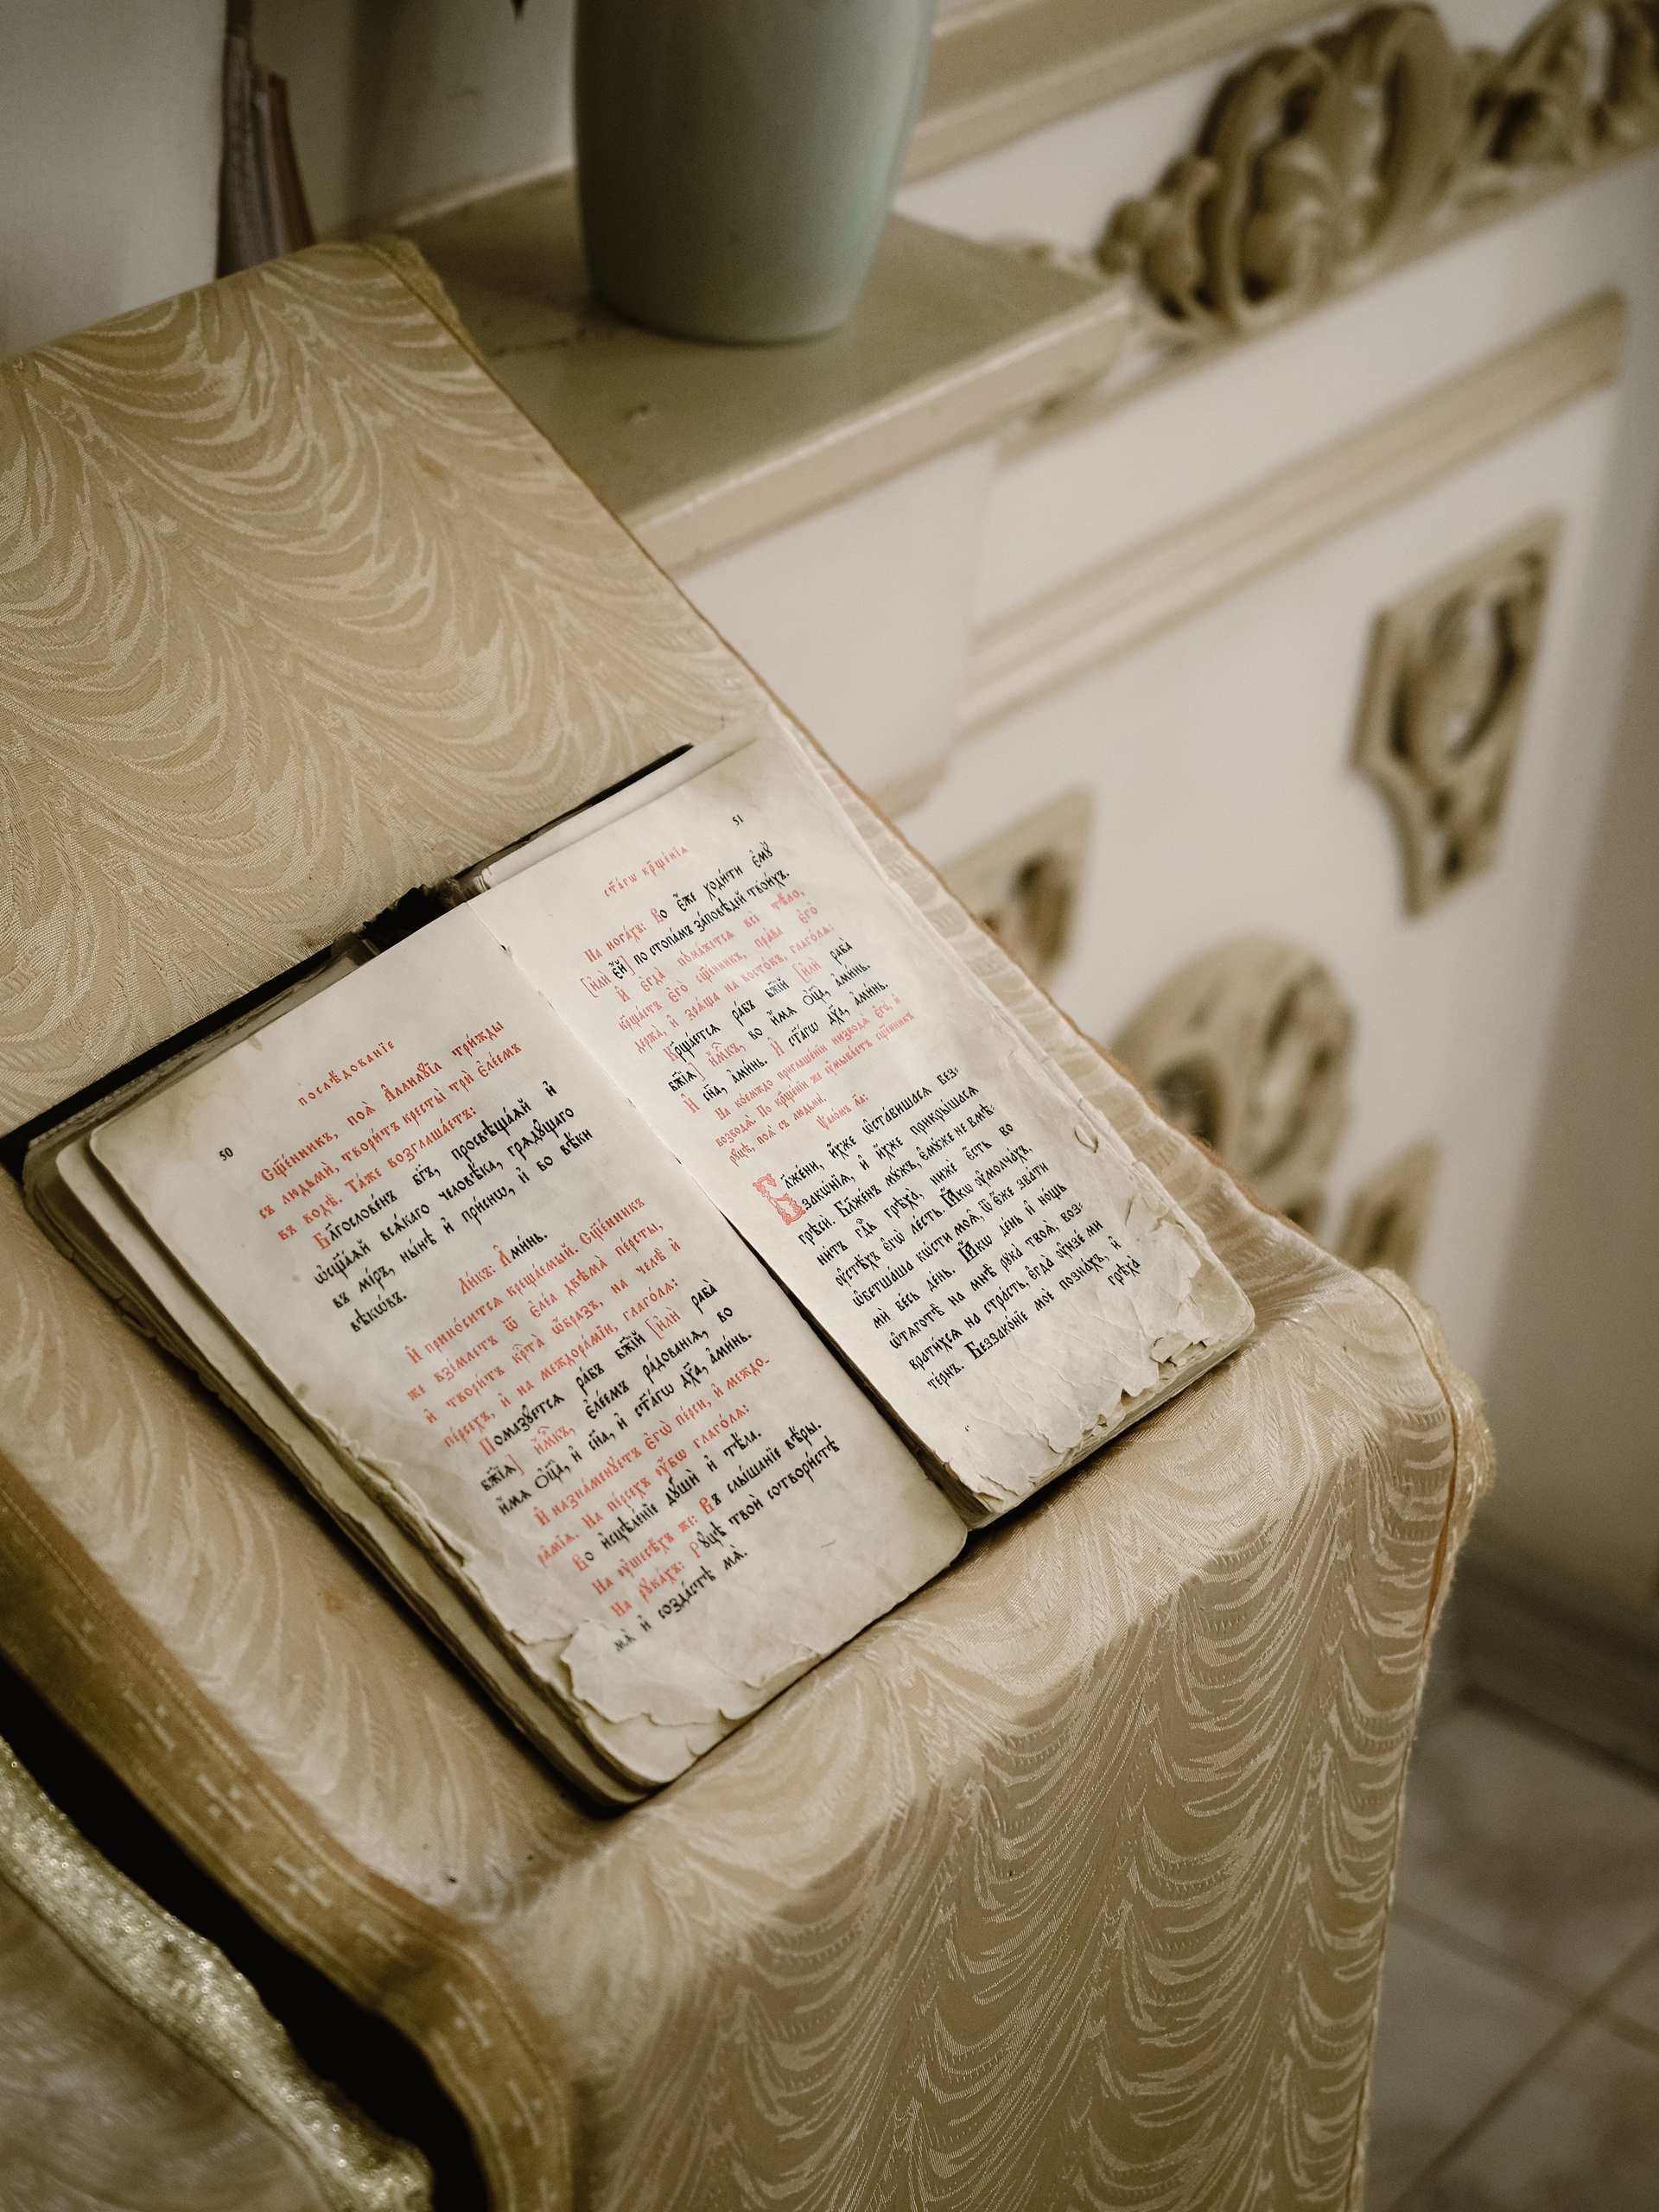 50
послѣдованїе
Сщ҃е́нникъ, поѧ̀ А҆ллилꙋ́їа три́жды
съ людьмѝ, твори́тъ кресты̀ трѝ є҆ле́емъ
въ водѣ̀. Та́же возглаша́етъ:
Бл҃гослове́нъ бг҃ъ, просвѣща́ѧй и҆
ѡ҆сщ҃а́ѧй всѧ́каго человѣ́ка, грѧдꙋ́щаго
въ мі́ръ, ны́нѣ и҆ при́снѡ, и҆ во вѣ́ки
вѣкѡ́въ.
Ли́къ: А҆ми́нь.
И҆ прино́ситсѧ креща́емый. Сщ҃е́нникъ
же взе́млетъ ѿ є҆ле́а двѣма̀ пе́рсты,
и҆ твори́тъ крⷭ҇та̀ ѡ҆́бразъ, на челѣ̀ и҆
пе́рсехъ, и҆ на междора́мїи, глаго́лѧ:
Помазꙋ́етсѧ ра́бъ бж҃їй [и҆лѝ раба̀
бж҃їѧ] и҆́мⷬ҇къ, є҆ле́емъ ра́дованїѧ, во
и҆́мѧ ѻ҆ц҃а̀, и҆ сн҃а, и҆ ст҃а́гѡ дх҃а, а҆ми́нь.
И҆ назна́менꙋетъ є҆гѡ̀ пе́рси, и҆ междо-
ра́мїѧ. На пе́рсехъ ᲂу҆́бѡ глаго́лѧ:
Во и҆сцѣле́нїе дꙋшѝ и҆ тѣ́ла.
На ᲂу҆шесѣ́хъ же: Въ слы́шанїе вѣ́ры.
На рꙋка́хъ: Рꙋ́цѣ твоѝ сотвори́стѣ
мѧ̀ и҆ созда́стѣ мѧ̀.
51
ст҃а́гѡ кр҃ще́нїѧ
На нога́хъ: Во є҆́же ходи́ти є҆мꙋ̀
[и҆лѝ є҆́й] по стопа́мъ за́повѣдей твои́хъ.
И҆ є҆гда̀ пома́жетсѧ всѐ тѣ́ло,
кр҃ща́етъ є҆го̀ сщ҃е́нникъ, пра́ва є҆го̀
держа̀, и҆ зрѧ́ща на восто́къ, глаго́лѧ:
Кр҃ща́етсѧ ра́бъ бж҃їй [и҆лѝ раба̀
бж҃їѧ] и҆́мⷬ҇къ, во и҆́мѧ ѻ҆ц҃а̀, а҆ми́нь.
И҆ сн҃а, а҆ми́нь. И҆ ст҃а́гѡ дх҃а, а҆ми́нь.
На ко́емждо приглаше́нїи низводѧ̀ є҆го̀, и҆
возводѧ̀. По кр҃ще́нїи же ᲂу҆мыва́етъ сщ҃е́нникъ
рꙋ́цѣ, поѧ̀ съ людьмѝ.
Ѱало́мъ л҃а:
Бл҃же́ни, и҆̀хже ѡ҆ста́вишасѧ без-
закѡ́нїѧ, и҆ и҆̀хже прикры́шасѧ
грѣсѝ. Бл҃же́нъ мꙋ́жъ, є҆мꙋ́же не вмѣ-
ни́тъ гдⷭ҇ь грѣха̀, нижѐ є҆́сть во
ᲂу҆стѣ́хъ є҆гѡ̀ ле́сть. Ꙗ҆́кѡ ᲂу҆молча́хъ,
ѡ҆бетша́ша кѡ́сти моѧ̑, ѿ є҆́же зва́ти
мѝ ве́сь де́нь. Ꙗ҆́кѡ де́нь и҆ но́щь
ѡ҆тѧготѣ̀ на мнѣ̀ рꙋка̀ твоѧ̀, воз-
врати́хсѧ на стра́сть, є҆гда̀ ᲂу҆нзе́ ми
те́рнъ. Беззако́нїе моѐ позна́хъ, и҆
грѣха̀